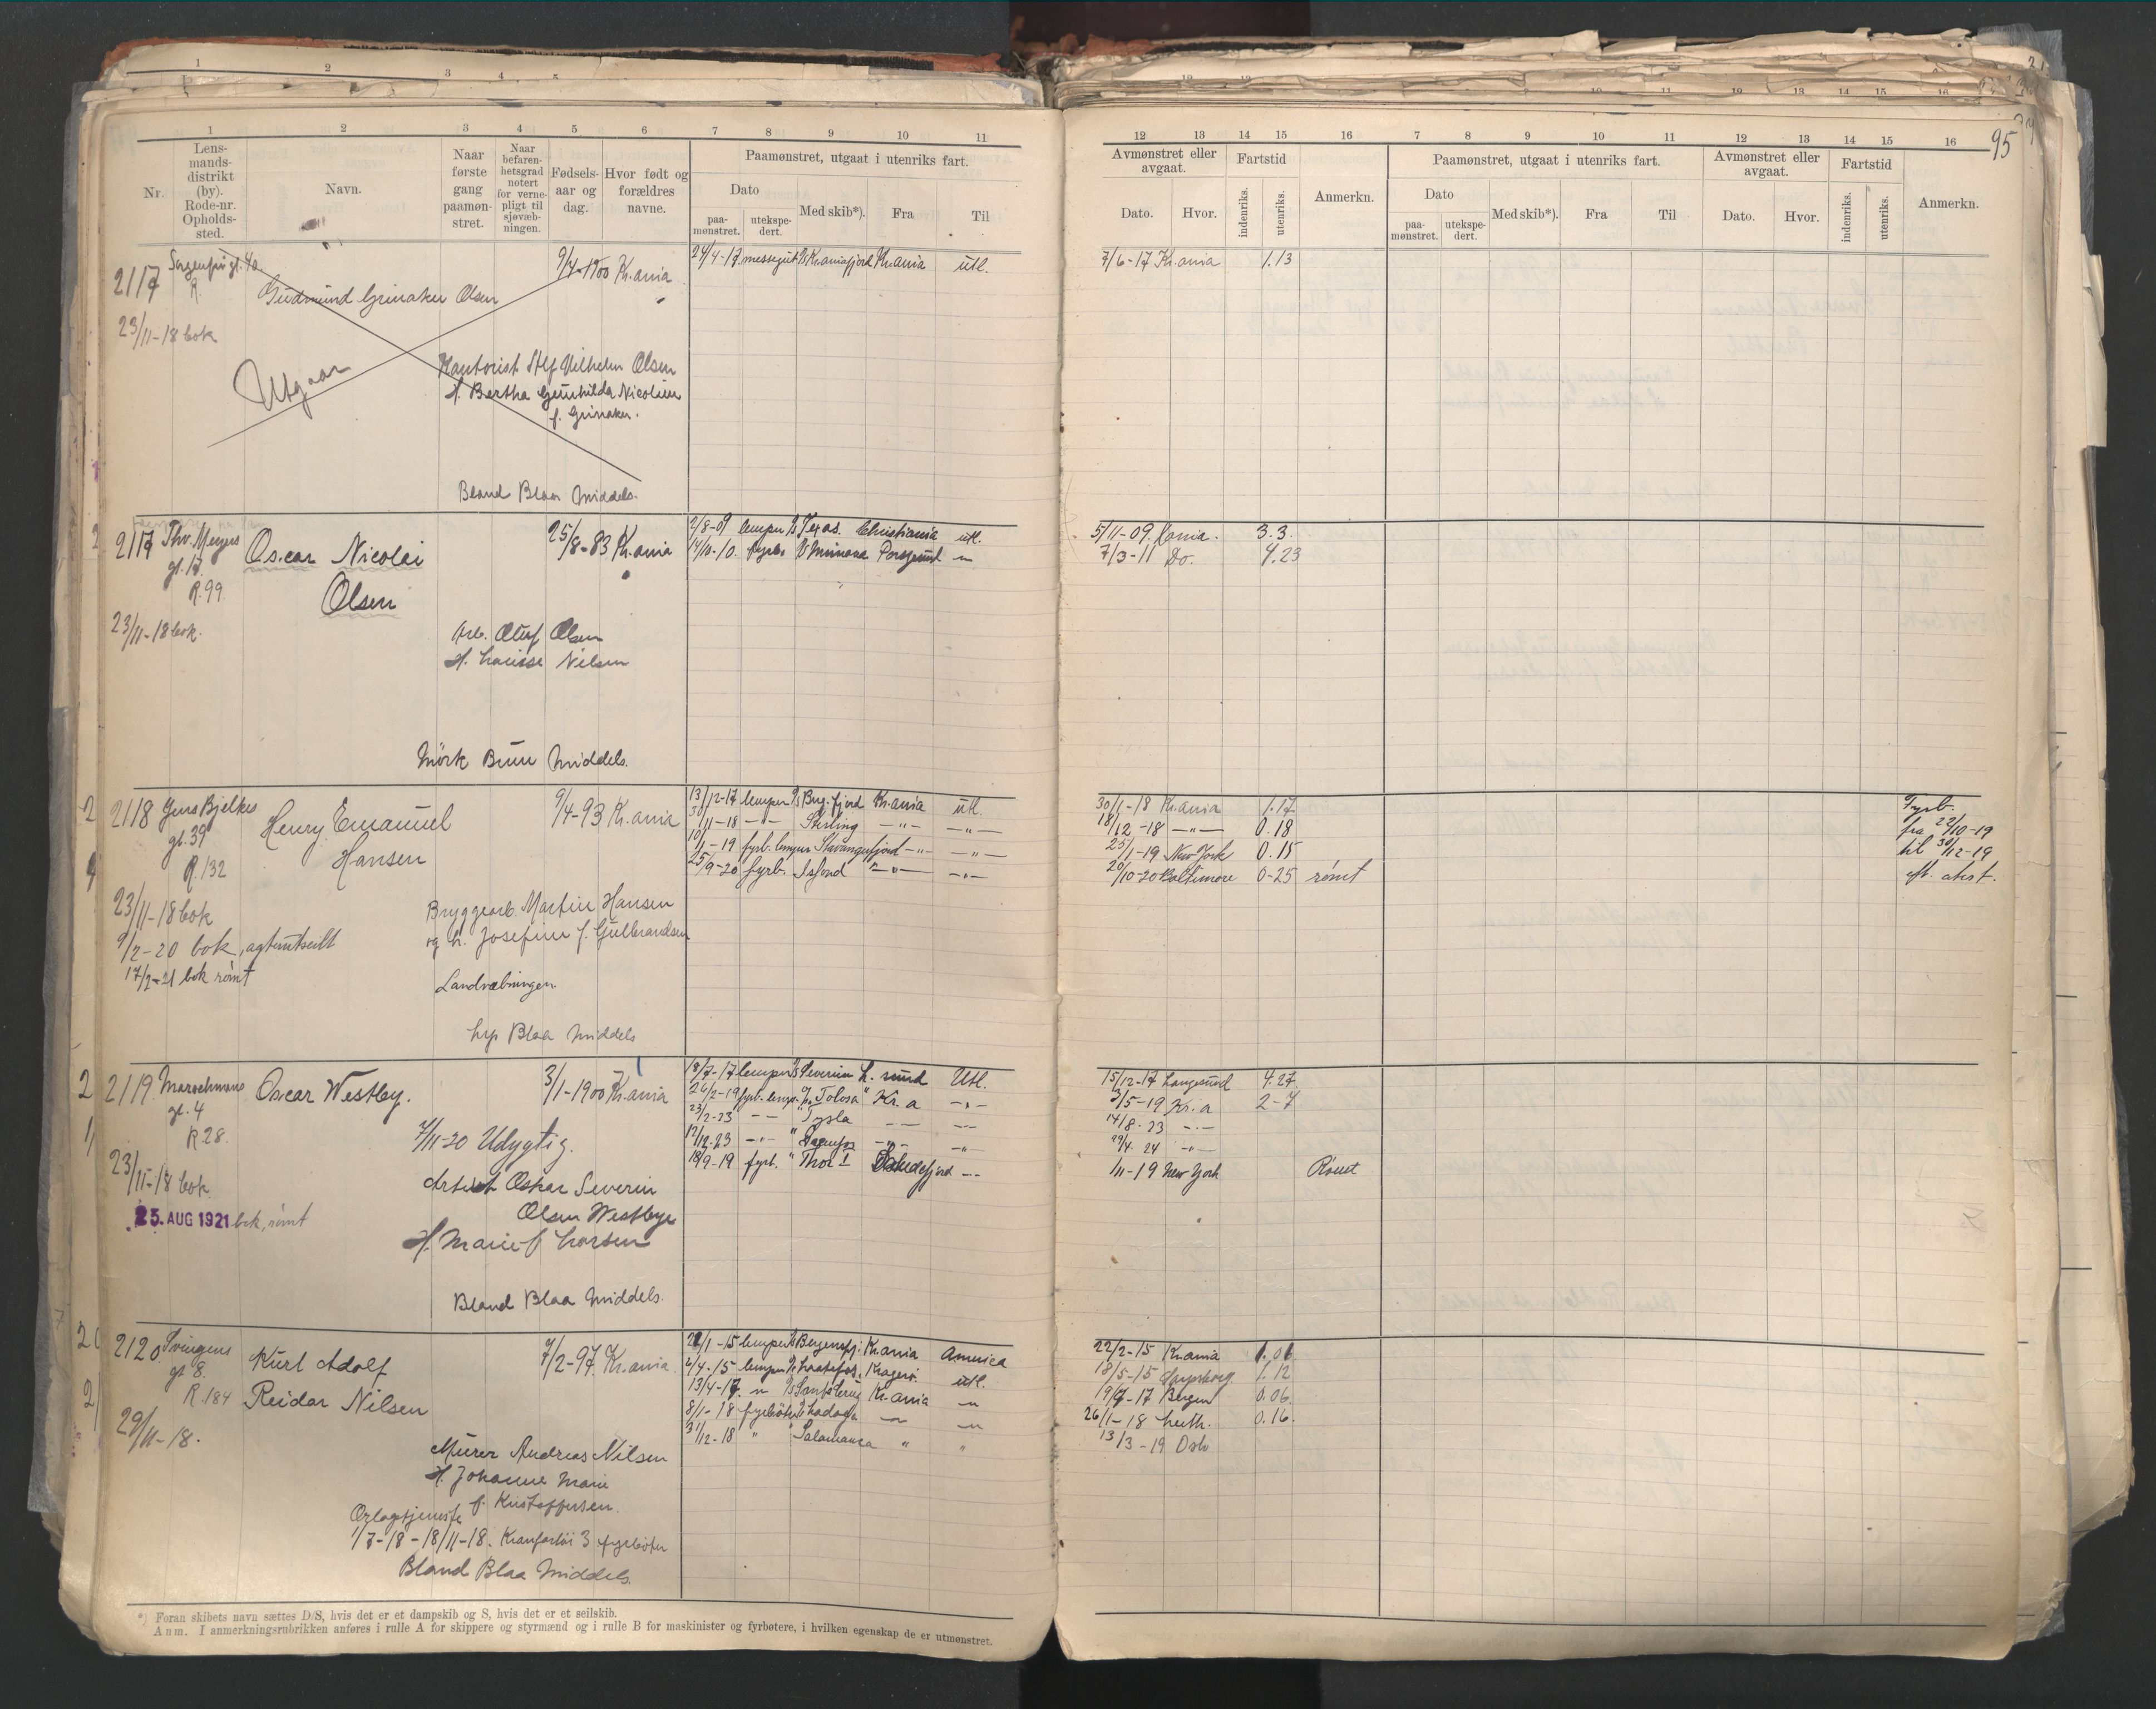 1 2 3 4 5 6 7 8 9 10 11
Nr.
Lens-
mands-
distrikt
(by).
Rode-nr.
Opholds-
sted.
Navn.
Naar
første
gang
paamøn-
stret.
Naar
befaren-
hetsgrad
notert
for verne-
pligt til
sjøvæb-
ningen.
Fødsels-
aar og
dag.
Hvor født og
forældres
navne.
Paamønstret, utgaat i utenriks fart.
Dato
paa-
mønstret.
utekspe-
dert.
Med skib*).
Fra
Til
12 13 14 15 16 7 8 9 10 11 12 13 14 15 16
95
Avmønstret eller
avgaat.
Dato.
Hvor.
Fartstid
indenriks.
utenriks.
Anmerkn.
Paamønstret, utgaat i utenriks fart.
Dato
paa-
mønstret.
utekspe-
dert.
Med skib*).
Fra
Til
Avmønstret eller
avgaat.
Dato.
Hvor.
Fartstid
indenriks.
utenriks.
Anmerkn.
2117 Sorgenfrigt. 4a
R.
Gudmund Grinaker Olsen
9/4-1900 Kr.ania
24/4-17 messegut Kr.aniafjord Kr.ania utl.
7/6-17 Kr.ania 1.13
23/11-18 bok
Utgaar
Kontorist Vilhelm Olsen
H. Bertha Gunhilda Nicoline
f. Grinaker.
Bland Blaa Middels.
2117 Thv. Meyers
gt. 17.
R. 99
Oscar Nicolai
Olsen
25/8-83 Kr.ania
2/8-09 lemper Texas. Christiania utl.
14/10-10. fyrb. Porsgrund
5/11-09. Kania. 3.3.
7/3-11 Do. 4.23
23/11-18 bok.
Arb. Oluf Olsen
H. Louise Nilsen
Mörk Brun Middels.
2118 Jens Bjelkes
gt. 39
R. 132
Henry Emanuel
Hansen
9/4-93 Kr.ania
13/12-17 lemper Brg.fjord Kr.ania utl.
30/11-18 -"- Stirling -"- -"-
10/1-19 fyrb. lemper Stavangerfjord -"- -"-
25/9-20 fyrb. -"- -"-
30/1-18 Kr.ania 1.17
18/12-18 -"- 0.18
25/1-19 New York 0.15
20/10-20 Baltimore 0-25 rømt
Fyrb.
fra 22/10-19
til 30/12-19
eft. atest.
23/11-18 bok
9/2-20 bok,
17/2-21 bok rømt
Bryggearb. Martin Hansen
og h. Josefine f. Gulbrandsen
Landvæbningen
Blaa Middels
2119
gt. 4
R 28.
Oscar Westby.
3/1-1900 Kr.ania
18/7-17 lemper Severin L. sund Utl.
26/2-19 fyrb. lemp. "Tolosa" Kr.a -"-
23/2-23 -- " Tysla -- --
12/12-23 -"- " -"- -"-
18/9-19 fyrb. " Thor I --
15/12-17 Langesund 4.27.
3/5-19 Kr.a 2-7
14/8-23 -"-
29/4. 24 -"-
1/11-19 New York Rømt
7/11-20 Udygtig.
23/11-18 bok
25. AUG 1921 bok, rømt
Oskar Severin
Olsen Westbye
H. Marie f. Larsen
Bland Blaa Middels.
2120 Svingens
gt 8.
R. 184
Kurt Adolf
Reidar Nilsen
7/2-97. Kr.ania.
22/1-15 lemper Bergensfj. Kr.ania America
2/4-15 lemper Kragerö. utl.
13/4-17. " Santa Cruz Kr.ania "
8/1-18 fyrböter Ladoga " "
31/12-18 " Salamanca " "
22/2-15 Kr.ania 1.01
18/5-15 Sarpsborg 1.12
19/7-17 Bergen 0.06.
26/1-18 Leith. 0.16.
13/3-19 Oslo
29/11-18.
Murer Andreas Nilsen
H. Johanne Marie
f. Kristoffersen.
Orlogstjeneste
1/7-18 - 18/11-18. Kanfartöi 3 fyrböter
Bland Blaa Middels.
*) Foran skibets navn sættes D/S, hvis det er et dampskib og S, hvis det er et seilskib.
Anm. I anmerkningsrubrikken anføres i rulle A for skippere og styrmænd og i rulle B for maskinister og fyrbøtere, i hvilken egenskap de er utmønstret.